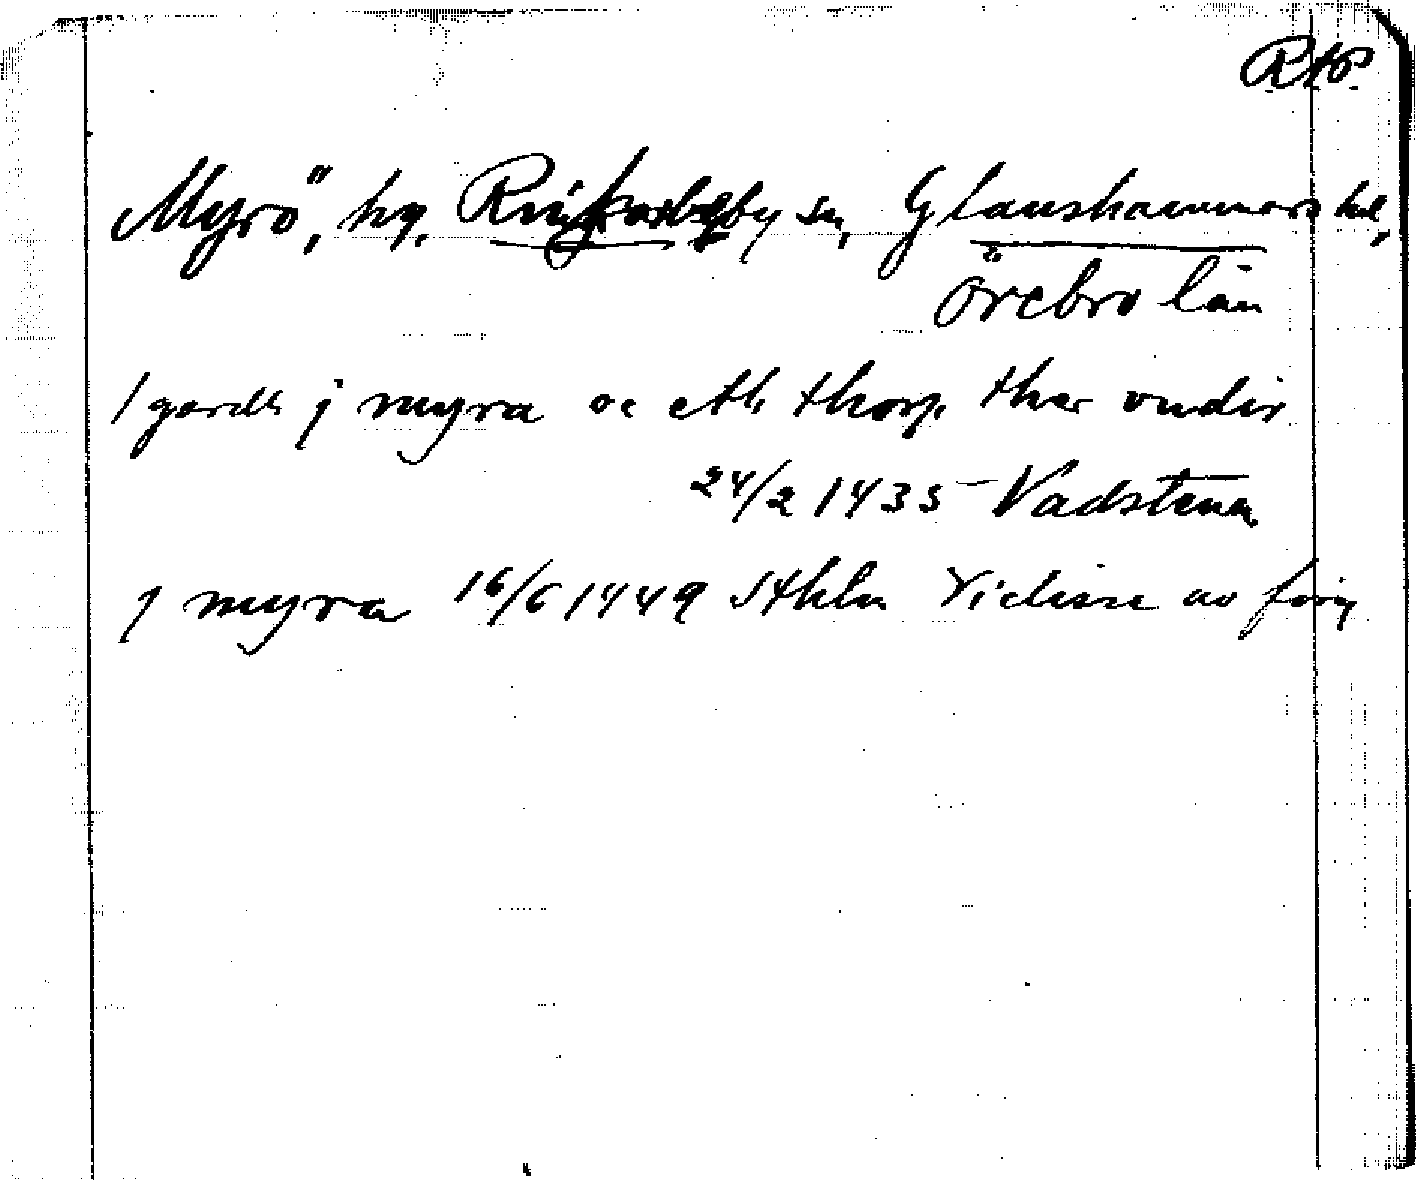 RAP
Myrö, hg, Rinkaby sn, Glanshammars hd,
Örebro län
1 gardh j myra oc eth thorp ther vndir
24/2 1435 Vadstena
j myra 16/6 1449 Sthlm Vidisse av föreg